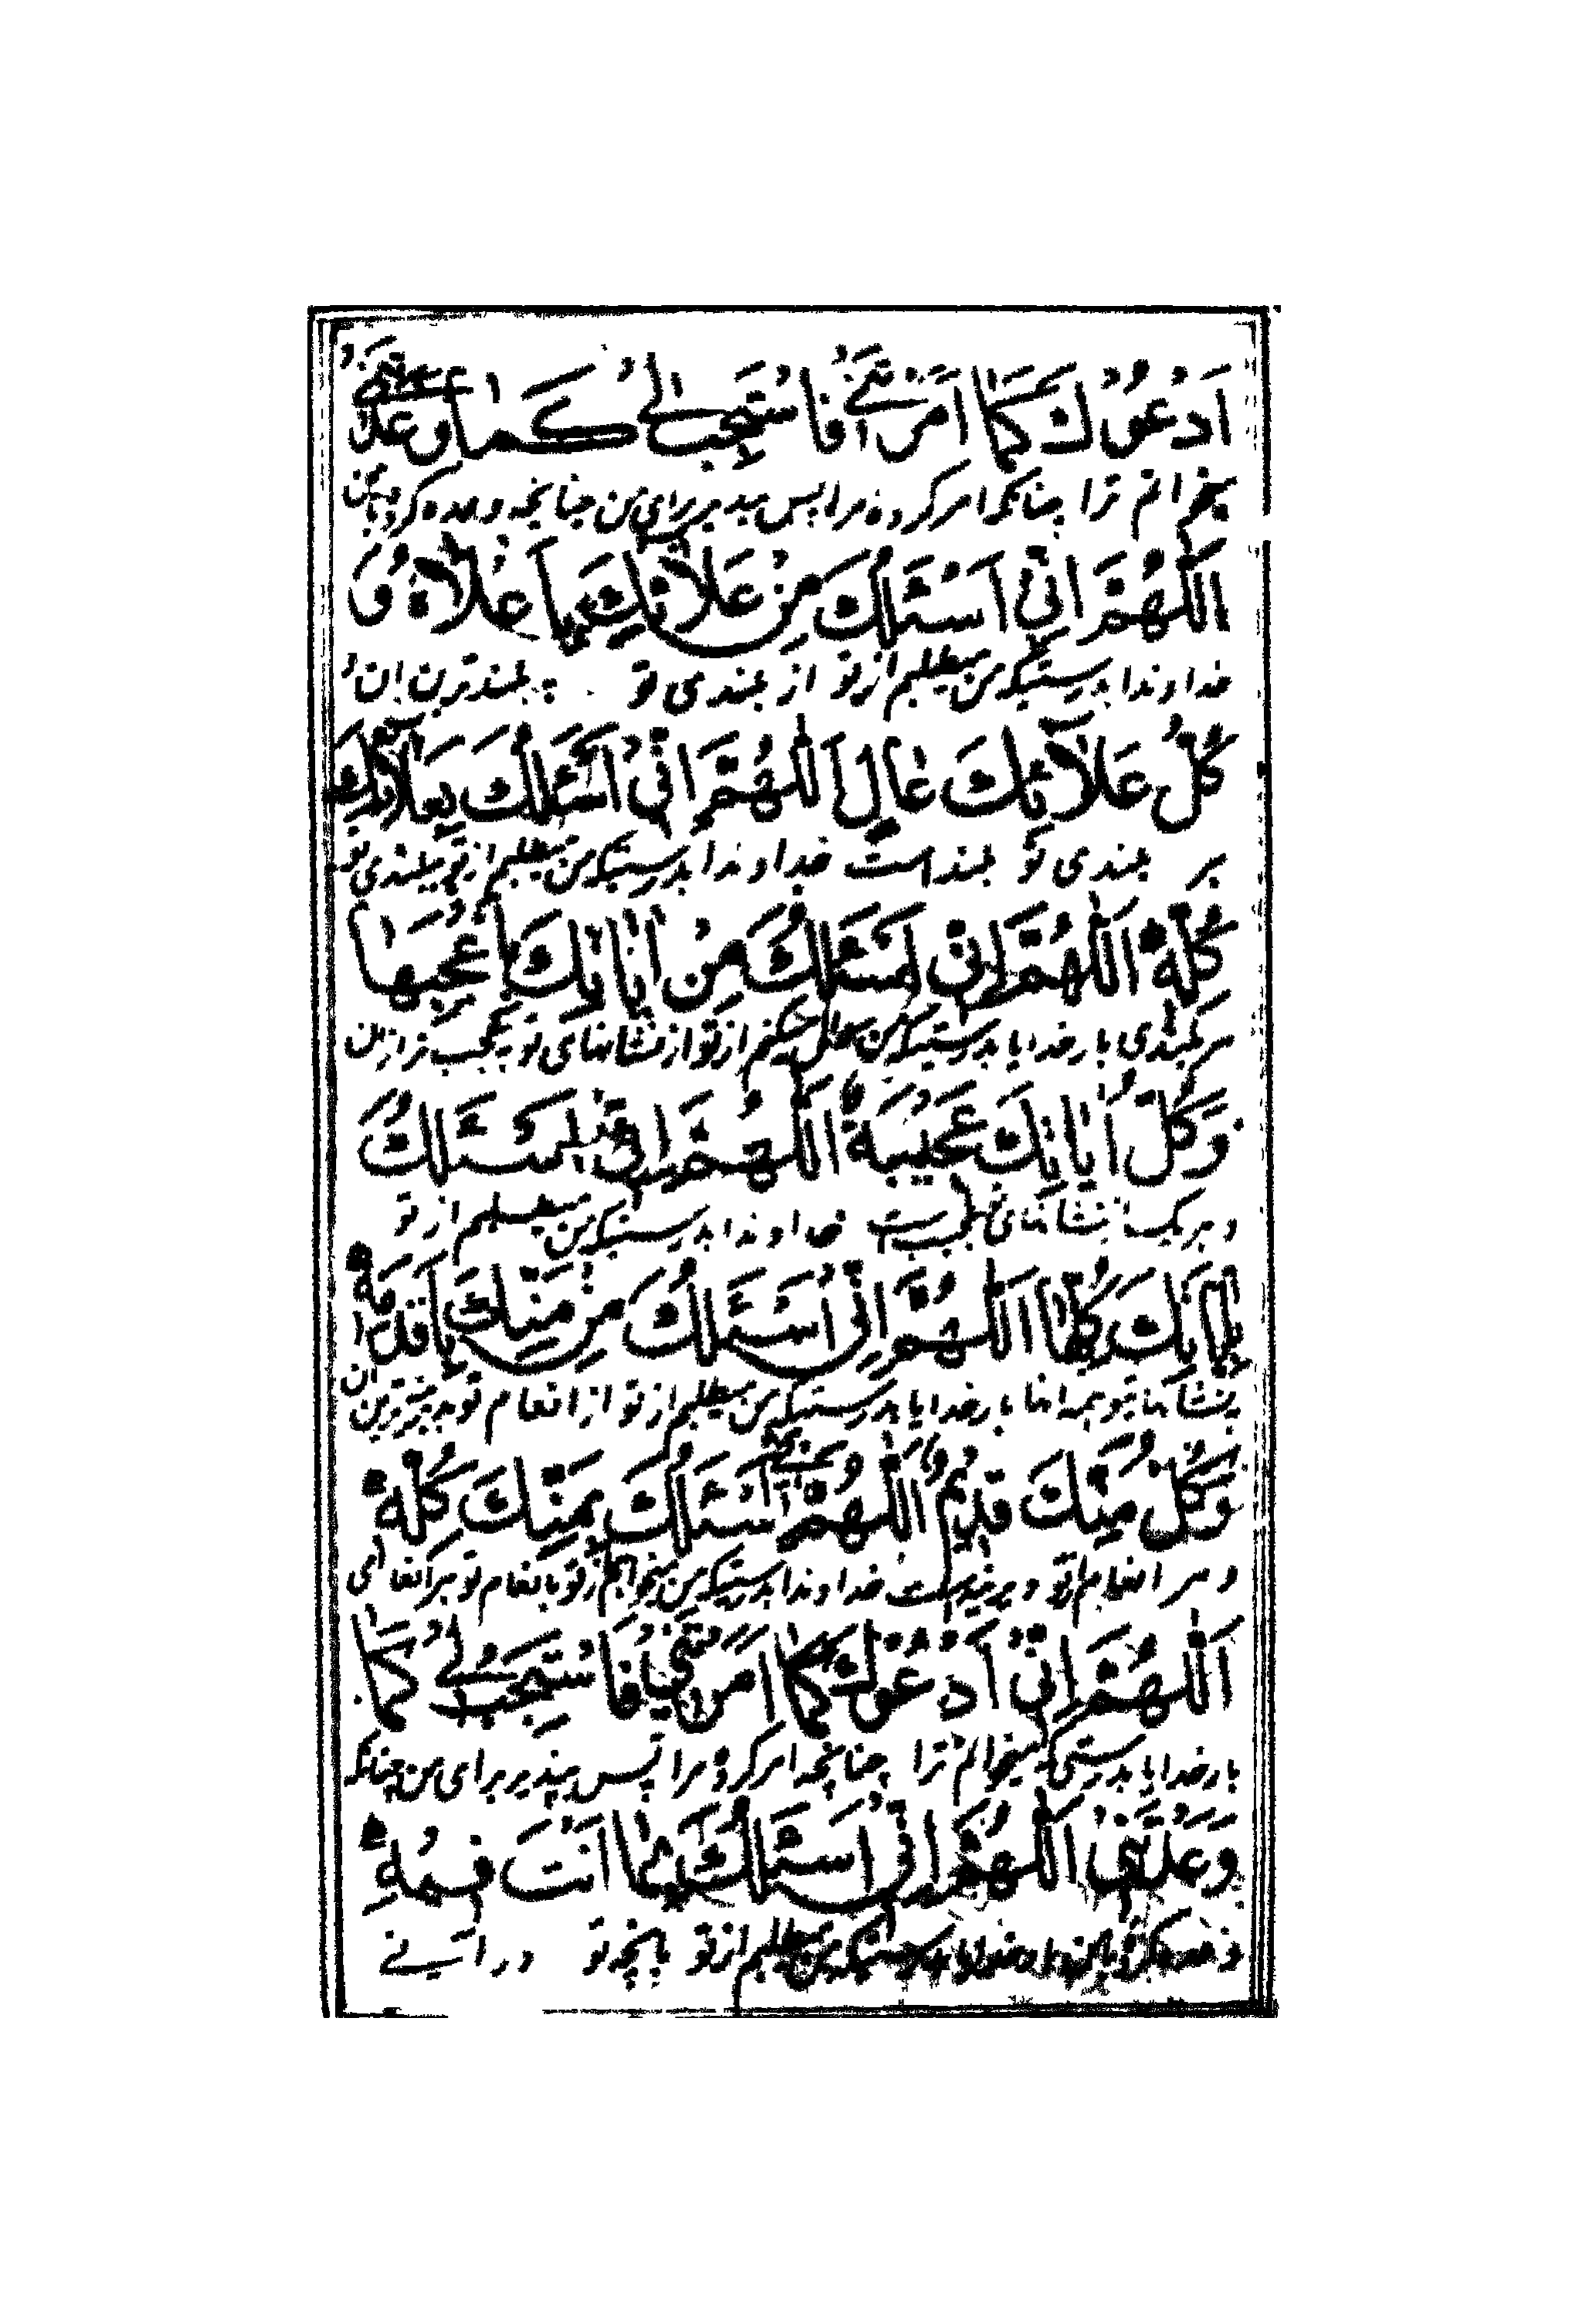 اَدْعُوكَ كَمَا اَمَرْتَنِي فَاسْتَجِبْ لِي كَمَا وَعَدْتَنِي
بخوانم ترا چنانکه امر کرده مرا پس بپذیر برای من چنانچه وعده کرده بمن
اَللّٰهُمَّ اِنِّي اَسْئَلُكَ مِنْ عَلَائِكَ بِاَعْلَاهُ وَ
خداوندا بدرستیکه من میطلبم از تو از بلندی تو به بلندترین آن و
كُلُّ عَلَائِكَ عَالٍ اَللّٰهُمَّ اِنِّي اَسْئَلُكَ بِعَلَائِكَ
هر بلندی تو بلند است خداوندا بدرستیکه من میطلبم از تو ببلندی تو
كُلِّهِ اَللّٰهُمَّ اِنِّي اَسْئَلُكَ مِنْ اٰيَاتِكَ بِاَعْجَبِهَا
هر بلندی بار خدایا بدرستیکه من سوال میکنم از تو از نشانهای تو به عجب تر از این
وَكُلُّ اٰيَاتِكَ عَجِيبَةٌ اَللّٰهُمَّ اِنِّي اَسْئَلُكَ
و هر یک نشانهای عجیب است خداوندا بدرستیکه من میطلبم از تو
بِاٰيَاتِكَ كُلِّهَا اَللّٰهُمَّ اِنِّي اَسْئَلُكَ مِنْ مَنِّكَ بِاَقْدَمِهِ
بنشانهای تو همه آنها بار خدایا بدرستیکه من میطلبم از تو از انعام تو به ترین آن
وَكُلُّ مَنِّكَ قَدِيمٌ اَللّٰهُمَّ اِنِّي اَسْئَلُكَ بِمَنِّكَ كُلِّهِ
و هر انعام تو است خداوندا بدرستیکه من میخواهم از تو بانعام تو هر انعامی
اَللّٰهُمَّ اِنِّي اَدْعُوكَ كَمَا اَمَرْتَنِي فَاسْتَجِبْ لِي كَمَا
بار خدایا بدرستیکه میخوانم ترا چنانچه امر کرده مرا پس بپذیر برای من چنانکه
وَعَدْتَنِي اَللّٰهُمَّ اِنِّي اَسْئَلُكَ بِمَا اَنْتَ فِيهِ
وعده کرده بمن بدرستیکه من میطلبم از تو بانچه تو در آنی